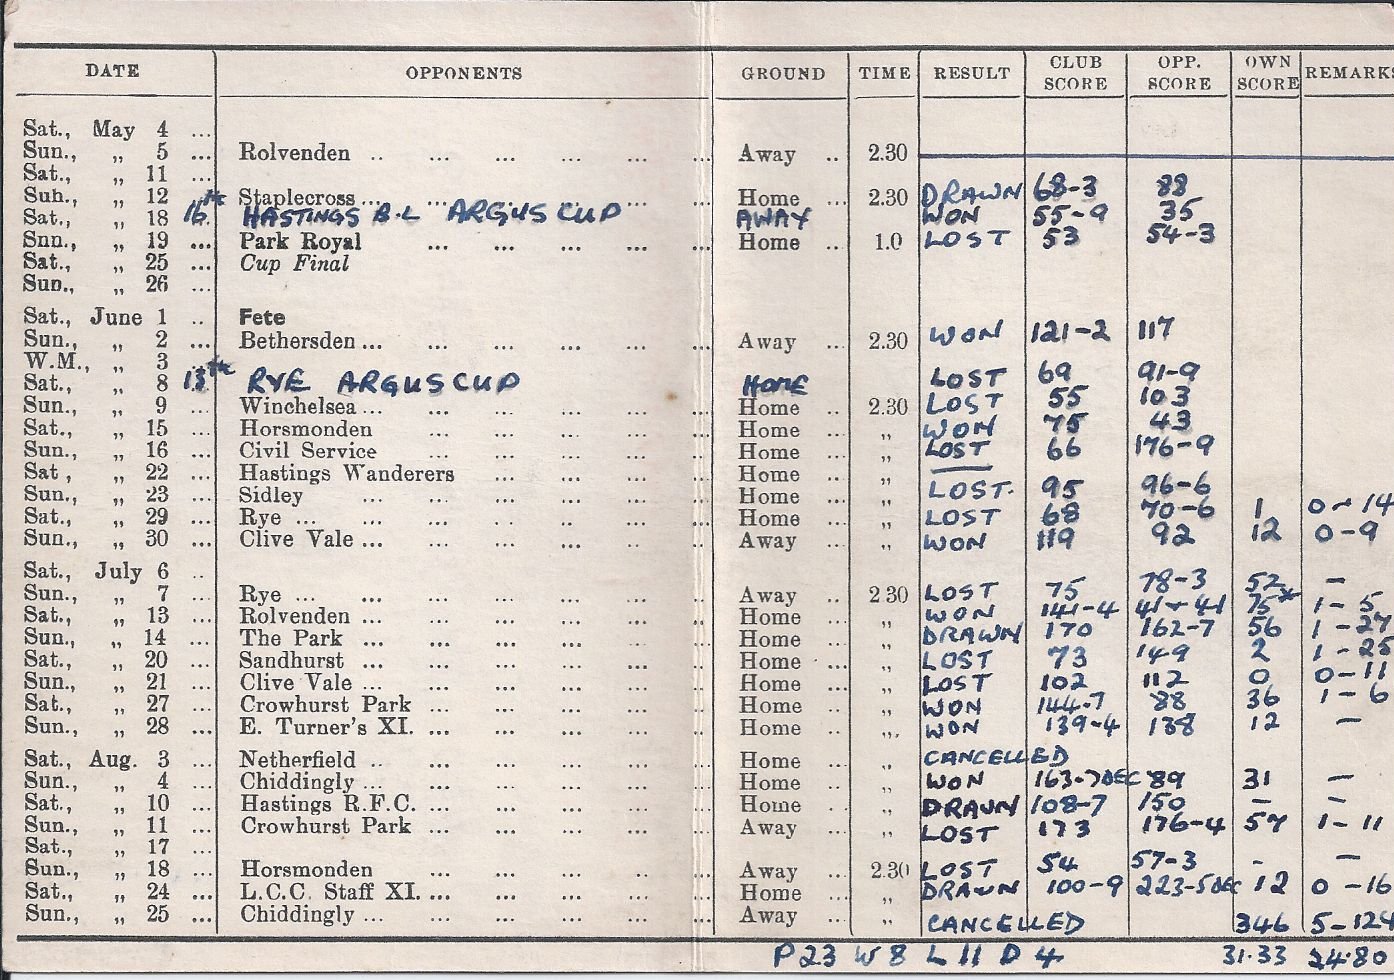 DATE OPPONENTS GROUND TIME RESULT CLUB SCORE OPP. SCORE OWN SCORE REMARKS
Sat., May 4 ...
Sun., „ 5 ... Rolvenden .. ... ... ... ... ... Away .. 2.30
Sat., „ 11 ...
Sun., „ 12 ... Staplecross ... ... ... ... ... ... Home ... 2.30 DRAWN 68-3 88
Sat., „ 18 16th HASTINGS B.L ARGUS CUP AWAY WON 55-9 35
Snn., „ 19 ... Park Royal ... ... ... ... ... Home ... 1.0 LOST 53 54-3
Sat., „ 25 ... Cup Final
Sun., „ 26 ...
Sat., June 1 .. Fete
Sun., „ 2 ... Bethersden ... ... ... ... ... ... Away .. 2.30 WON 121-2 117
W.M., „ 3 ...
Sat., „ 8 13th RYE ARGUS CUP HOME LOST 69 91-9
Sun., „ 9 ... Winchelsea ... ... ... ... ... ... Home .. 2.30 LOST 55 103
Sat., „ 15 ... Horsmonden ... ... ... ... ... Home ... „ WON 75 43
Sun., „ 16 ... Civil Service ... ... ... ... ... Home ... „ LOST 66 176-9
Sat , „ 22 ... Hastings Wanderers ... ... ... ... Home ... „ —
Sun., „ 23 ... Sidley ... ... ... ... ... ... Home ... „ LOST. 95 96-6
Sat., „ 29 ... Rye ... ... ... ... ... ... ... Home ... „ LOST 68 70-6 1 0-14
Sun., „ 30 ... Clive Vale ... ... ... ... ... ... Away ... „ WON 119 92 12 0-9
Sat., July 6 ..
Sun., „ 7 ... Rye ... ... ... ... ... ... ... Away .. 2 30 LOST 75 78-3 52 -
Sat., „ 13 ... Rolvenden ... ... ... ... ... ... Home ... „ WON 141-4 41+41 75* 1-5
Sun., „ 14 ... The Park ... ... ... ... ... ... Home ... „ DRAWN 170 162-7 56 1-27
Sat., „ 20 ... Sandhurst ... ... ... ... ... ... Home ... „ LOST 73 149 2 1-25
Sun., „ 21 ... Clive Vale ... ... ... ... ... ... Home ... „ LOST 102 112 0 0-11
Sat., „ 27 ... Crowhurst Park ... ... ... ... ... Home ... „ WON 144-7 88 36 1-6
Sun., „ 28 ... E. Turner's XI. ... ... ... ... ... Home ... „ WON 139-4 138 12 -
Sat., Aug. 3 ... Netherfield ... ... ... ... ... ... Home ... „ CANCELLED
Sun., „ 4 ... Chiddingly ... ... ... ... ... ... Home ... „ WON 163-7 DEC 89 31 -
Sat., „ 10 ... Hastings R.F.C. ... ... ... ... ... Home ... „ DRAWN 108-7 150 - -
Sun., „ 11 ... Crowhurst Park ... ... ... ... ... Away ... „ LOST 173 176-4 57 1-11
Sat., „ 17 ...
Sun., „ 18 ... Horsmonden ... ... ... ... ... Away ... 2.30 LOST 54 57-3 - -
Sat., „ 24 ... L.C.C. Staff XI. ... ... ... ... ... Home ... „ DRAWN 100-9 223-5 DEC 12 0-16
Sun., „ 25 ... Chiddingly ... ... ... ... ... ... Away ... „ CANCELLED 346 5-124
P 23 W 8 L 11 D 4 31.33 24.80